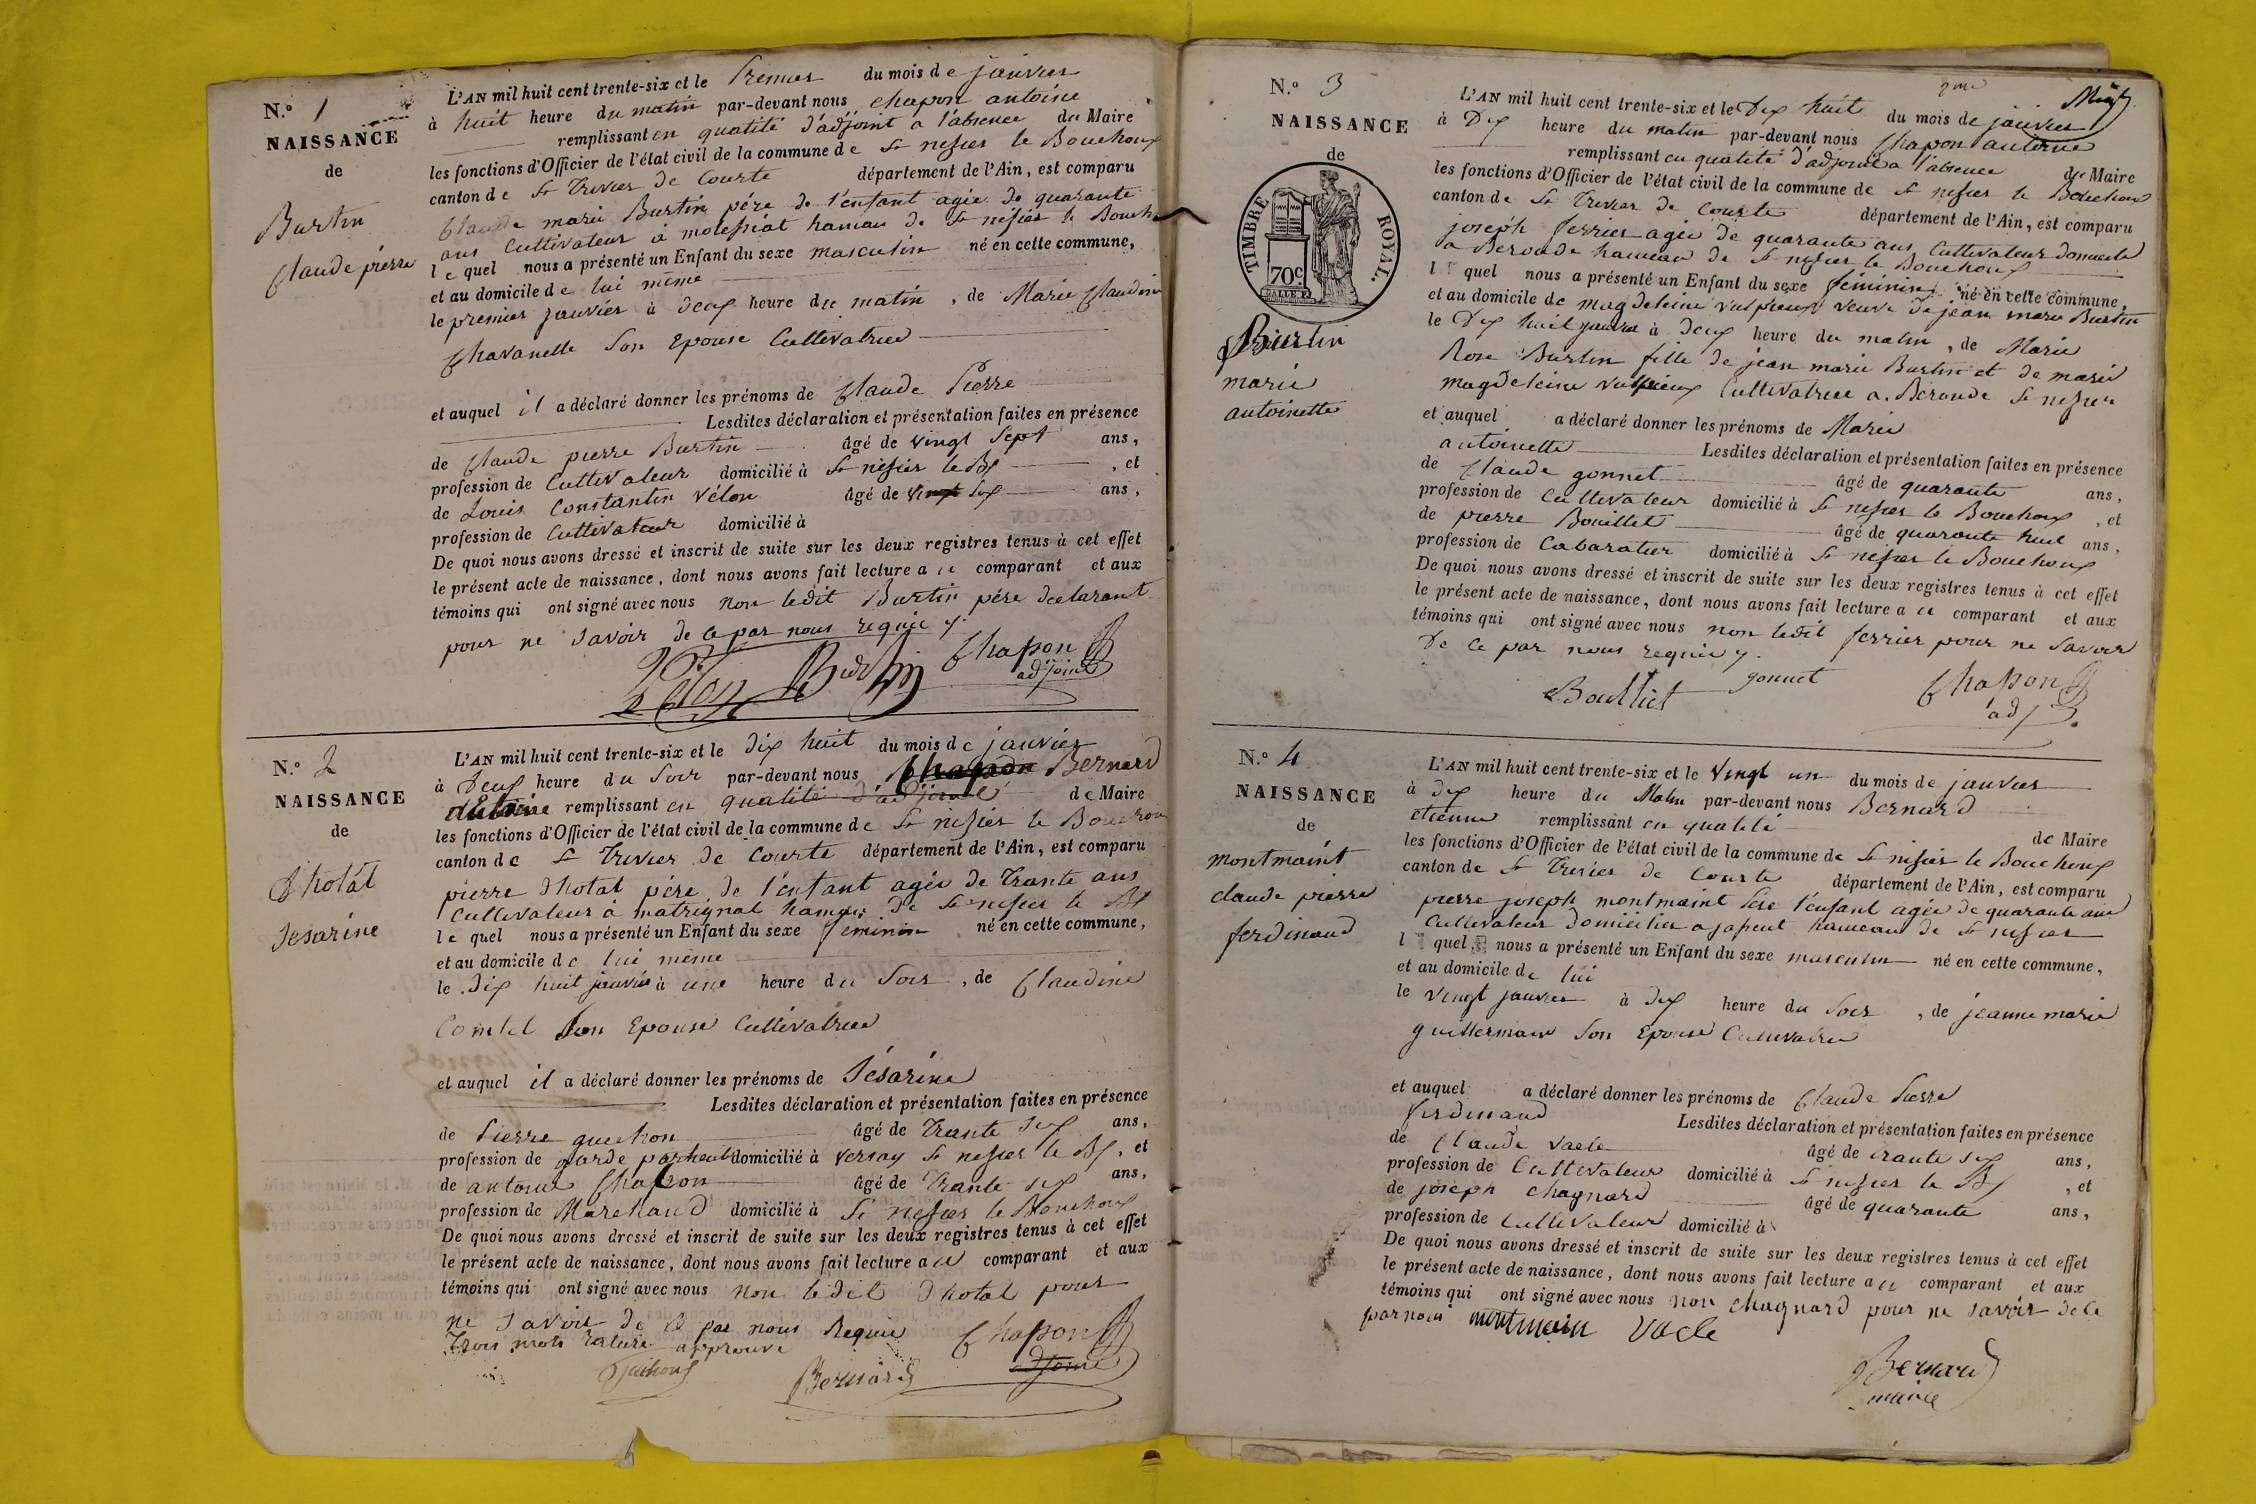 N.º 1
NAISSANCE
de
Burtin
Claude pierre
L'AN mil huit cent trente-six et le Premier du mois de janvier
à huit heure du matin par-devant nous chapon antoine
remplissant en qualité d'adjoint a l'absence du Maire
les fonctions d'Officier de l'état civil de la commune de St nisier le Bouchoux
canton de St Trivier de Courte département de l'Ain, est comparu
Claude marie Burtin pére de l'enfant agée de quarante
ans Cultivateur à molessiat hamau de St nisier le Bouch
le quel nous a présenté un Enfant du sexe masculin né en cette commune,
et au domicile de lui même
le premier janvier à deux heure du matin, de Marie Claudine
Chavanelle Son Epouse Cultivatrice
et auquel il a déclaré donner les prénoms de Claude Pierre
Lesdites déclaration et présentation faites en présence
de Claude pierre Burtin âgé de vingt Sept ans,
profession de Cultivateur domicilié à St nisier le Bx, et
de Louis Constantin Vélon âgé de vingt Six ans,
profession de Cultivateur domicilié à
De quoi nous avons dressé et inscrit de suite sur les deux registres tenus à cet effet
le présent acte de naissance, dont nous avons fait lecture a ce comparant et aux
témoins qui ont signé avec nous non ledit Burtin pére declarant
pour ne savoir de ce par nous requie y.
Burtin Chapon
adjoint
N.º 2
NAISSANCE
de
Dhotal
Sesarine
L'AN mil huit cent trente-six et le dix huit du mois de janvier
à Deux heure du Soir par-devant nous Chapon Bernard
antoine remplissant en qualité d'adjoint de Maire
les fonctions d'Officier de l'état civil de la commune de St nisier le Bouchoux
canton de St Trivier de Courte département de l'Ain, est comparu
pierre Dhotal pére de l'entant agée de Trante ans
Cultivateur à matrignat hamau de St nisier le Bx
le quel nous a présenté un Enfant du sexe feminin né en cette commune,
et au domicile de lui même
le dix huit janvié à une heure du Soir, de Claudine
Comtet Son Epouse Cultivatrice
et auquel il a déclaré donner les prénoms de Sésarine
Lesdites déclaration et présentation faites en présence
de Pierre guichon âgé de Trante Six ans,
profession de garde domicilié à Vernay St nisier le Bx, et
de antoine Chapon âgé de Trante six ans,
profession de Marchand domicilié à St nisier le Bouchoux
De quoi nous avons dressé et inscrit de suite sur les deux registres tenus à cet effet
le présent acte de naissance, dont nous avons fait lecture a ce comparant et aux
témoins qui ont signé avec nous non ledit Dhotal pour
ne savoir de ce par nous Requie Chapon
Trois mots rature approuve adjoint
Guichon Bernard
N.º 3
NAISSANCE
de
TIMBRE ROYAL.
70 c
Burtin
marie
antoinette
2me
L'AN mil huit cent trente-six et le Dix huit du mois de janvier
à Dix heure du matin par-devant nous Chapon antoine
remplissant en qualité d'adjoint a l'absence de Maire
les fonctions d'Officier de l'état civil de la commune de St nisier le Bouchoux
canton de St Trivier de Courte département de l'Ain, est comparu
joséph ferrier agée de quarante ans Cultivateur domicilé
a Beroude hameau de St nisier le Bouchoux
l quel nous a présenté un Enfant du sexe féminin né en cette commune,
et au domicile de magdeleine vulpieux veuve de jean marie Burtin
le Dix huit janvier à deux heure du matin, de Marie
Rose Burtin fille de jean marie Burtin et de marie
magdeleine vulpieux Cultivatrice a Béroude St nisier
et auquel a déclaré donner les prénoms de Marie
antoinette Lesdites déclaration et présentation faites en présence
de Claude gonnet âgé de quarante ans,
profession de Cultivateur domicilié à St nisier le Bouchoux, et
de pierre Bouillet âgé de quarante huit ans,
profession de Cabaratier domicilié à St nisier le Bouchoux
De quoi nous avons dressé et inscrit de suite sur les deux registres tenus à cet effet
le présent acte de naissance, dont nous avons fait lecture a ce comparant et aux
témoins qui ont signé avec nous non ledit ferrier pour ne savoir
de ce par nous requie y.
Boulliet gonnet Chapon
adj
N.º 4
NAISSANCE
de
montmaint
claude pierre
ferdinand
L'AN mil huit cent trente-six et le vingt un du mois de janvier
à dix heure du Matin par-devant nous Bernard
etienne remplissant en qualité de Maire
les fonctions d'Officier de l'état civil de la commune de St nisier le Bouchoux
canton de St Trivier de Courte département de l'Ain, est comparu
pierre joseph montmaint Pére l'enfant agée de quarante ans
Cultivateur domicilier a japent hameau de St nisier
l quel nous a présenté un Enfant du sexe masculin né en cette commune,
et au domicile de lui
le vingt janvier à dix heure du Soir, de jeanne marie
guillermain Son Epouse Cultivatrice
et auquel a déclaré donner les prénoms de Claude Pierre
ferdinand Lesdites déclaration et présentation faites en présence
de Claude Vacle âgé de trante six ans,
profession de Cultivateur domicilié à St nisier le Bx, et
de joseph Chagnard âgé de quarante ans,
profession de Cultivateur domicilié à
De quoi nous avons dressé et inscrit de suite sur les deux registres tenus à cet effet
le présent acte de naissance, dont nous avons fait lecture a ce comparant et aux
témoins qui ont signé avec nous non Chagnard pour ne savoir de ce
par nous montmain Vacle
Bernard
maire